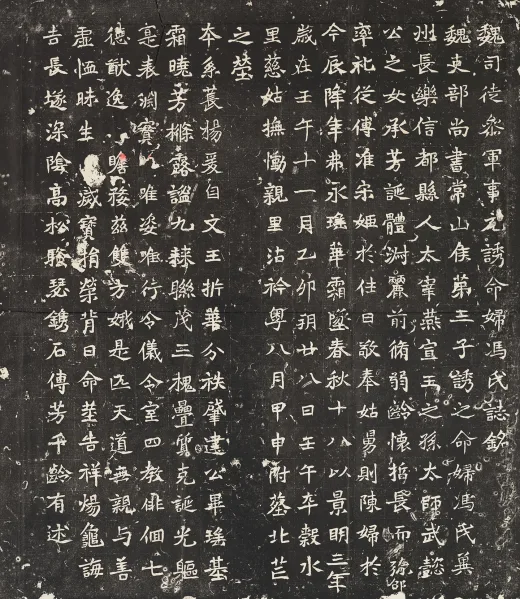 魏司徒參軍事元誘命婦馮氏誌銘
魏吏部尚書常山侯第三子誘之命婦馮氏冀
州長樂信都縣人太宰燕宣王之孫太師武懿
公之女承芳誕體淵麗前脩弱齡懷哲長而
率礼從傅准宋姬於往日敬奉姑舅則陳婦於
今辰降年弗永瑤華霜墜春秋十八以景明三年
歲在壬午十一月乙卯朔廿八日壬午卒穀水
里慈姑撫慟親里沾衿粵八月甲申附墓北芒
之塋
本系萇楊爰自文王折華分秩肇建公畢瑤基
霜曉芳條露謐九棘聯茂三槐疊質克誕光軀
寔表淵實 唯姿唯行令儀令室四教俳佪七
德猷逸 瞻 茲雙 方娥是匹天道無親与善
虛恤昧生 歲實捐榮背日命 告祥煬龜誨
吉長埏深陰高松 瑟鐫石傳芳千齡有述